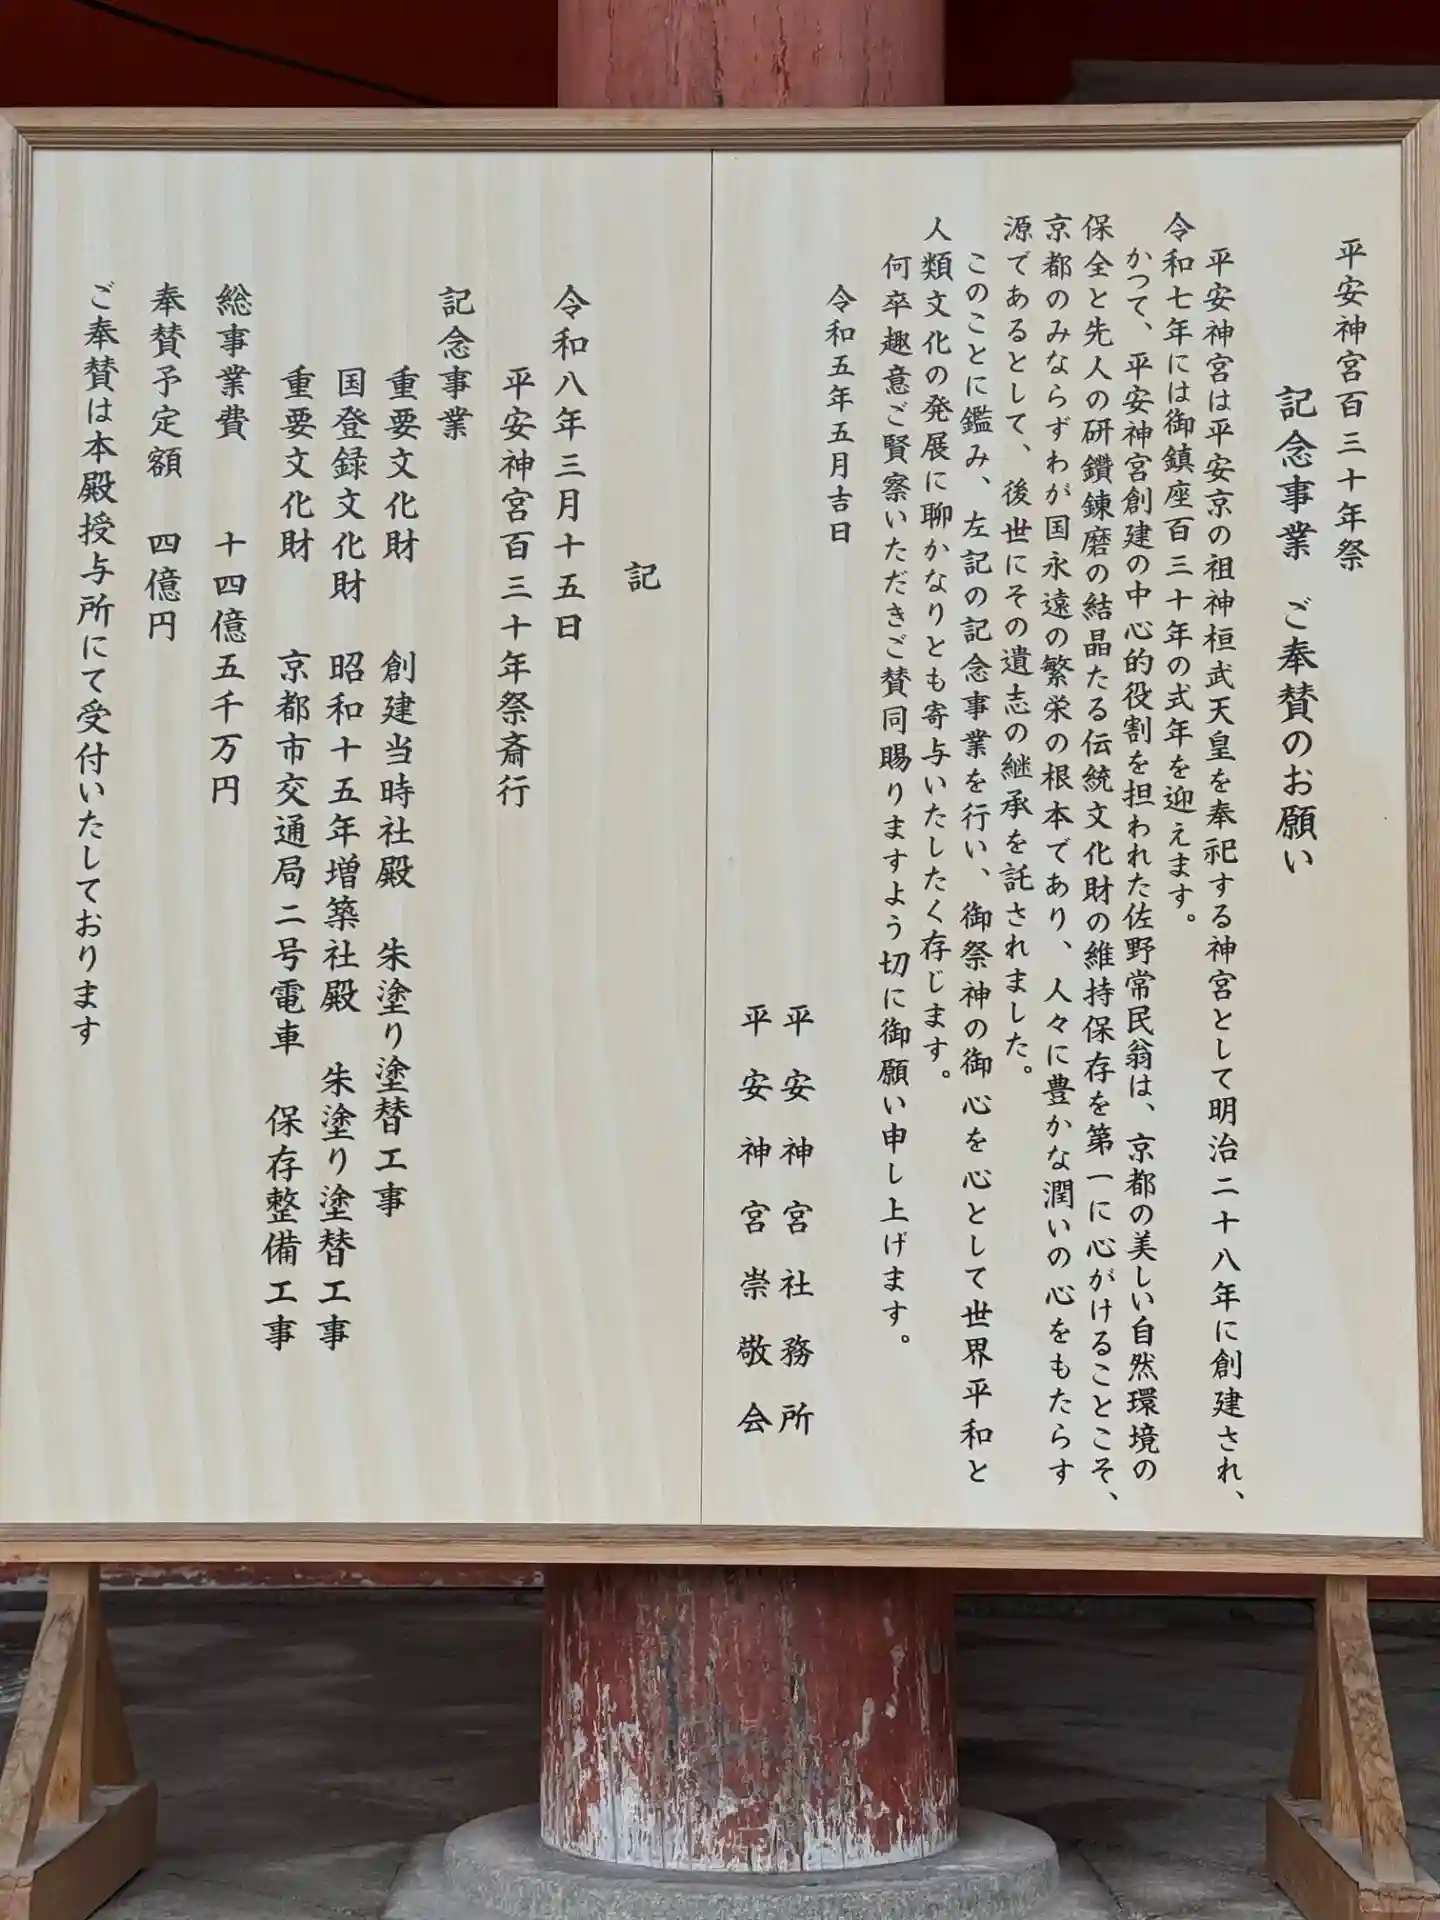 平安神宮百三十年祭
記念事業 ご奉賛のお願い
平安神宮は平安京の祖神桓武天皇を奉祀する神宮として明治二十八年に創建され、
令和七年には御鎮座百三十年の式年を迎えます。
かつて、平安神宮創建の中心的役割を担われた佐野常民翁は、京都の美しい自然環境の
保全と先人の研鑽錬磨の結晶たる伝統文化財の維持保存を第一に心がけることこそ、
京都のみならずわが国永遠の繁栄の根本であり、人々に豊かな潤いの心をもたらす
源であるとして、後世にその遺志の継承を託されました。
このことに鑑み、左記の記念事業を行い、御祭神の御心を心として世界平和と
人類文化の発展に聊かなりとも寄与いたしたく存じます。
何卒趣意ご賢察いただきご賛同賜りますよう切に御願い申し上げます。
令和五年五月吉日
平安神宮社務所
平安神宮崇敬会
記
令和八年三月十五日
平安神宮百三十年祭斎行
記念事業
重要文化財 創建当時社殿 朱塗り塗替工事
国登録文化財 昭和十五年増築社殿 朱塗り塗替工事
重要文化財 京都市交通局二号電車 保存整備工事
総事業費 十四億五千万円
奉賛予定額 四億円
ご奉賛は本殿授与所にて受付いたしております